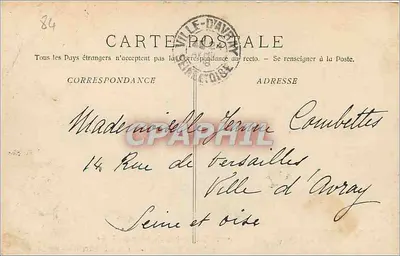 84
CARTE POSTALE
VILLE-D'AVRAY
SEINE ET OISE
Tous les Pays étrangers n'acceptent pas la Correspondance au recto. – Se renseigner à la Poste.
CORRESPONDANCE
ADRESSE
Mademoiselle Jeanne Combettes
CPAPHIL
14 Rue de Versailles
Ville d'Avray
Seine et Oise